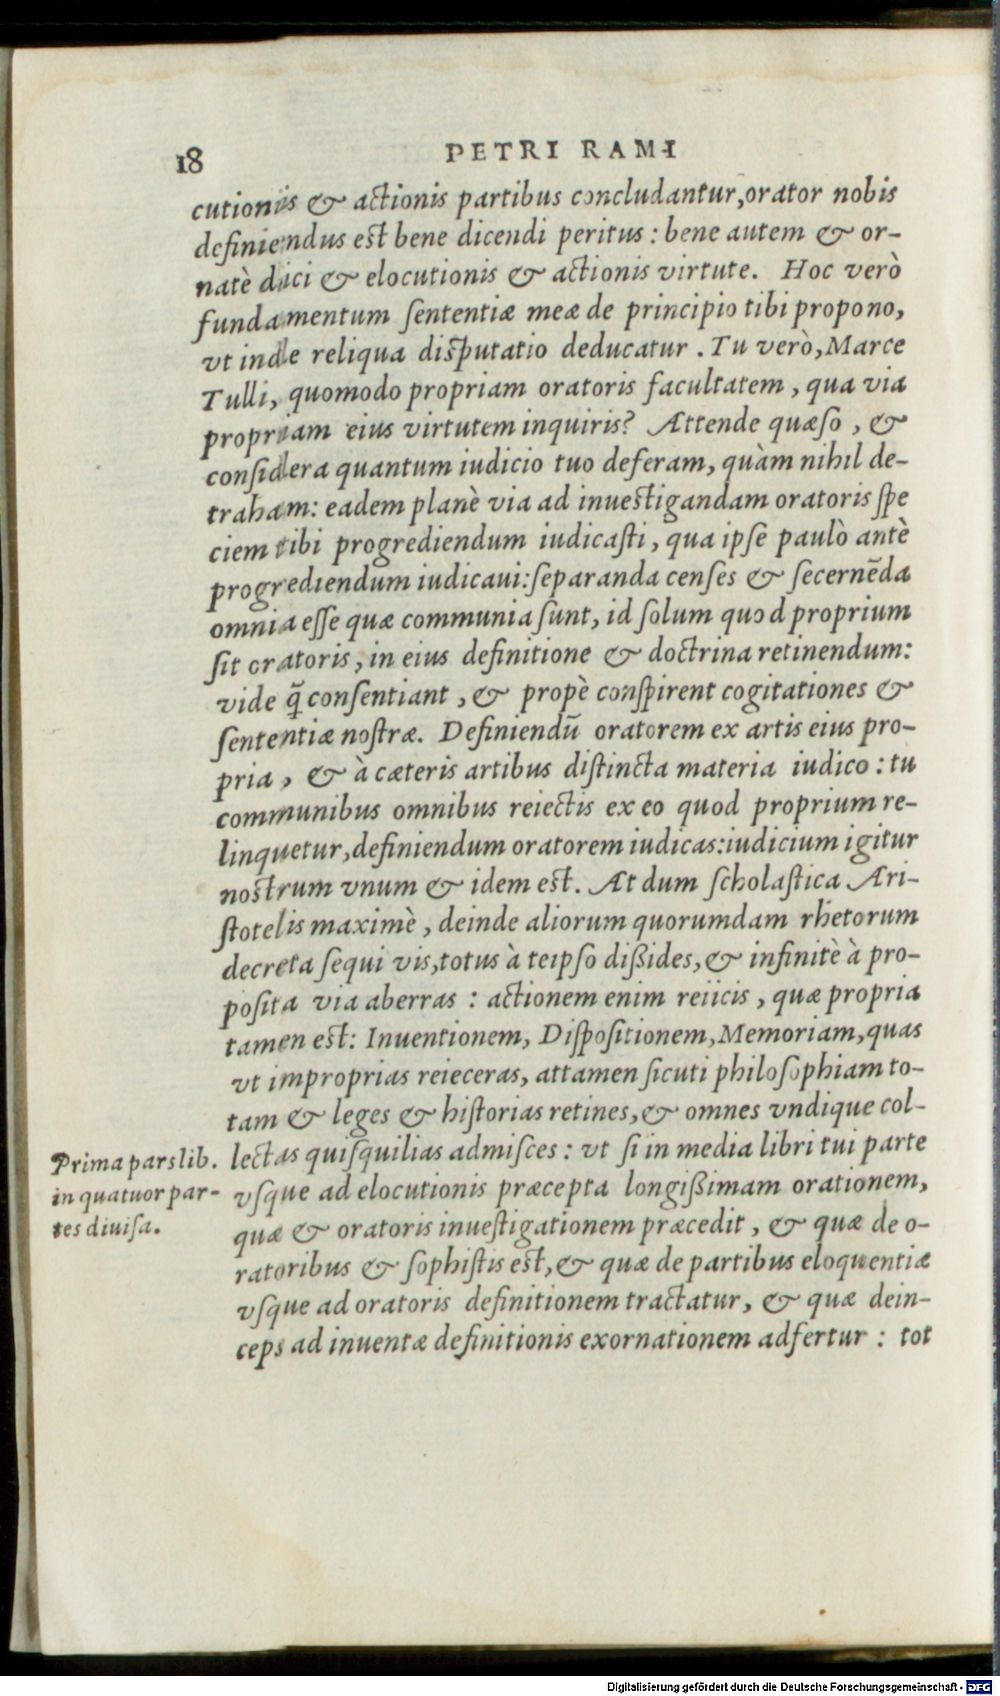 18
PETRI RAMI
cutionis & actionis partibus concludantur, orator nobis
definiendus est bene dicendi peritus: bene autem & or-
natè dici & elocutionis & actionis virtute. Hoc verò
fundamentum ſententiæ meæ de principio tibi propono,
vt inde reliqua diſputatio deducatur. Tu verò, Marce
Tulli, quomodo propriam oratoris facultatem, qua via
propriam eius virtutem inquiris? Attende quæſo, &
conſidera quantum iudicio tuo deferam, quàm nihil de-
traham: eadem planè via ad inuestigandam oratoris ſpe
ciem tibi progrediendum iudicaſti, qua ipſe paulò antè
progrediendum iudicaui: ſeparanda cenſes & ſecernēda
omnia eſſe quæ communia ſunt, id ſolum quod proprium
ſit oratoris, in eius definitione & doctrina retinendum:
vide q̃ conſentiant, & propè conſpirent cogitationes &
ſententiæ noſtræ. Definiendū oratorem ex artis eius pro-
pria, & à cæteris artibus diſtincta materia iudico: tu
communibus omnibus reiectis ex eo quod proprium re-
linquetur, definiendum oratorem iudicas: iudicium igitur
nostrum vnum & idem est. At dum ſcholaſtica Ari-
ſtotelis maximè, deinde aliorum quorumdam rhetorum
decreta ſequi vis, totus à teipſo dißides, & infinitè à pro-
poſita via aberras: actionem enim reiicis, quæ propria
tamen est: Inuentionem, Diſpoſitionem, Memoriam, quas
vt improprias reieceras, attamen ſicuti philoſophiam to-
tam & leges & hiſtorias retines, & omnes vndique col-
lectas quiſquilias admiſces: vt ſi in media libri tui parte
vſque ad elocutionis præcepta longißimam orationem,
quæ & oratoris inueſtigationem præcedit, & quæ de o-
ratoribus & ſophiſtis est, & quæ de partibus eloquentiæ
vſque ad oratoris definitionem tractatur, & quæ dein-
ceps ad inuentæ definitionis exornationem adfertur: tot
Prima pars lib.
in quatuor par-
tes diuiſa.
Digitalisierung gefördert durch die Deutsche Forschungsgemeinschaft - DFG